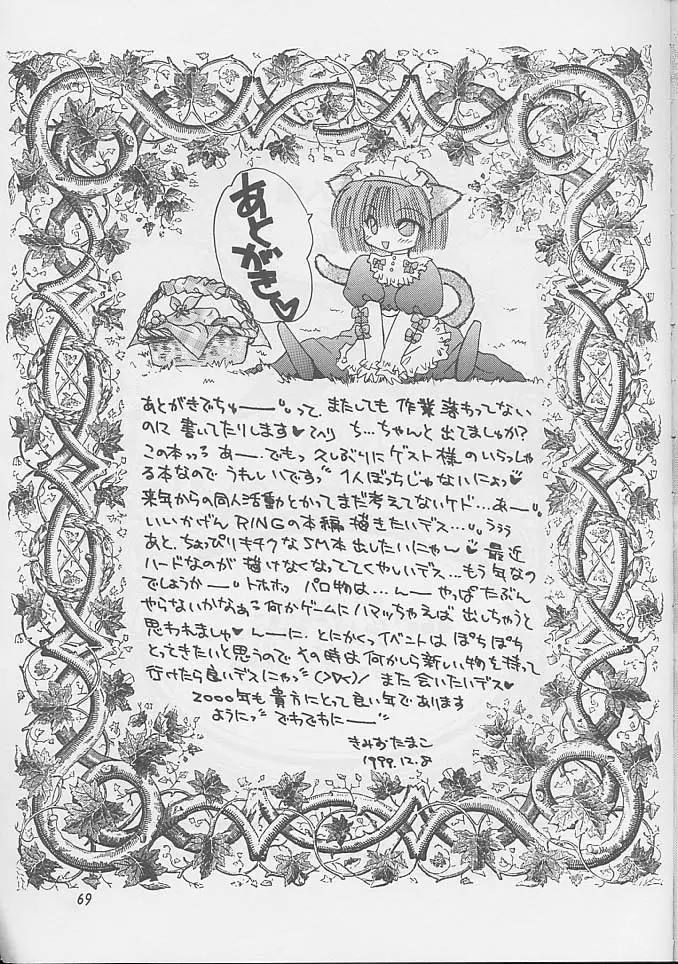 あとがき♥
あとがきでちゅー――"。って、またしても 作業 終わってない
のに 書いてたりします♥てへっ ち…ちゃんと 出てましゅか?
この本っっる あー、でもっ 久しぶりに ゲスト様 のいらっしゃ
る本なので うれしいですっ" 1人ぼっちじゃないにょっ♥
来年からの同人活動とかって まだ考えてないケド…あー"。
いいかげん RINGの本編 描きたいデス…"。うぅぅ
あと、ちょっぴりキチクなSM本 出したいにゃ〜♥ 最近
ハードなのが 描けなくなっててくやしいデス…もう 気なの
でしょうかー" トホホっ パロ物は…んー やっぱ たぶん
やらないかなぁる 何かゲームに ハマッちゃえば 出しちゃうと
思われましゅ♥ んーに、とにかくっ イベントは ぽちぽち
とってきたいと思うので その時は 何かしら 新しい物を 持って
行けたら良いデスにゃっ" (>▽<)/ また 会いたいデス♥
2000年も 貴方にとって 良い年であります
ように。" でわでわにー――"
きみおたまこ
1999.12.8
69